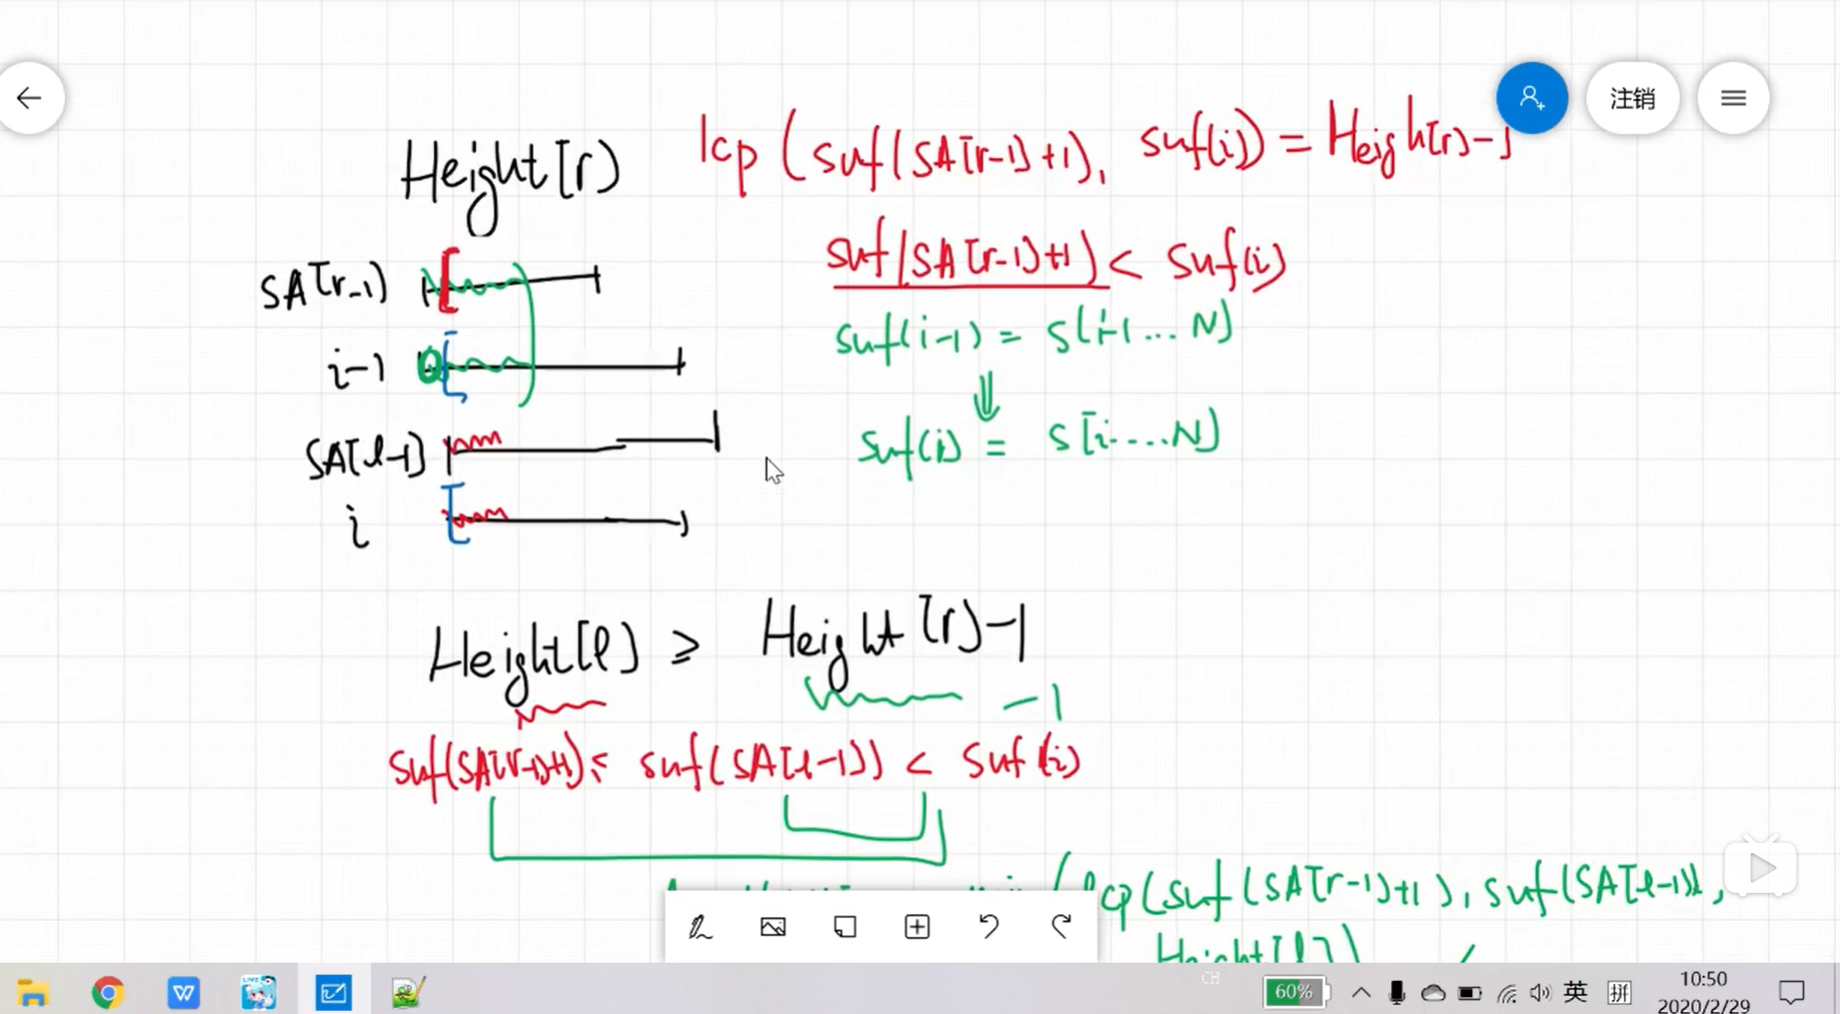 注销
Height[r]
lcp(suf(SA[r-1]+1), suf(i)) = Heigh[r]-1
SA[r-1]
suf(SA[r-1]+1) < suf(i)
i-1
suf(i-1) = s[i-1...N]
SA[l-1]
suf(i) = s[i....N]
i
Height[l] ≥ Height[r]-1
-1
suf(SA[r-1]+1) ≤ suf(SA[l-1]) < suf(i)
lcp(suf(SA[r-1]+1), suf(SA[l-1]),
Height[l])
CH
60%
英
拼
10:50
2020/2/29